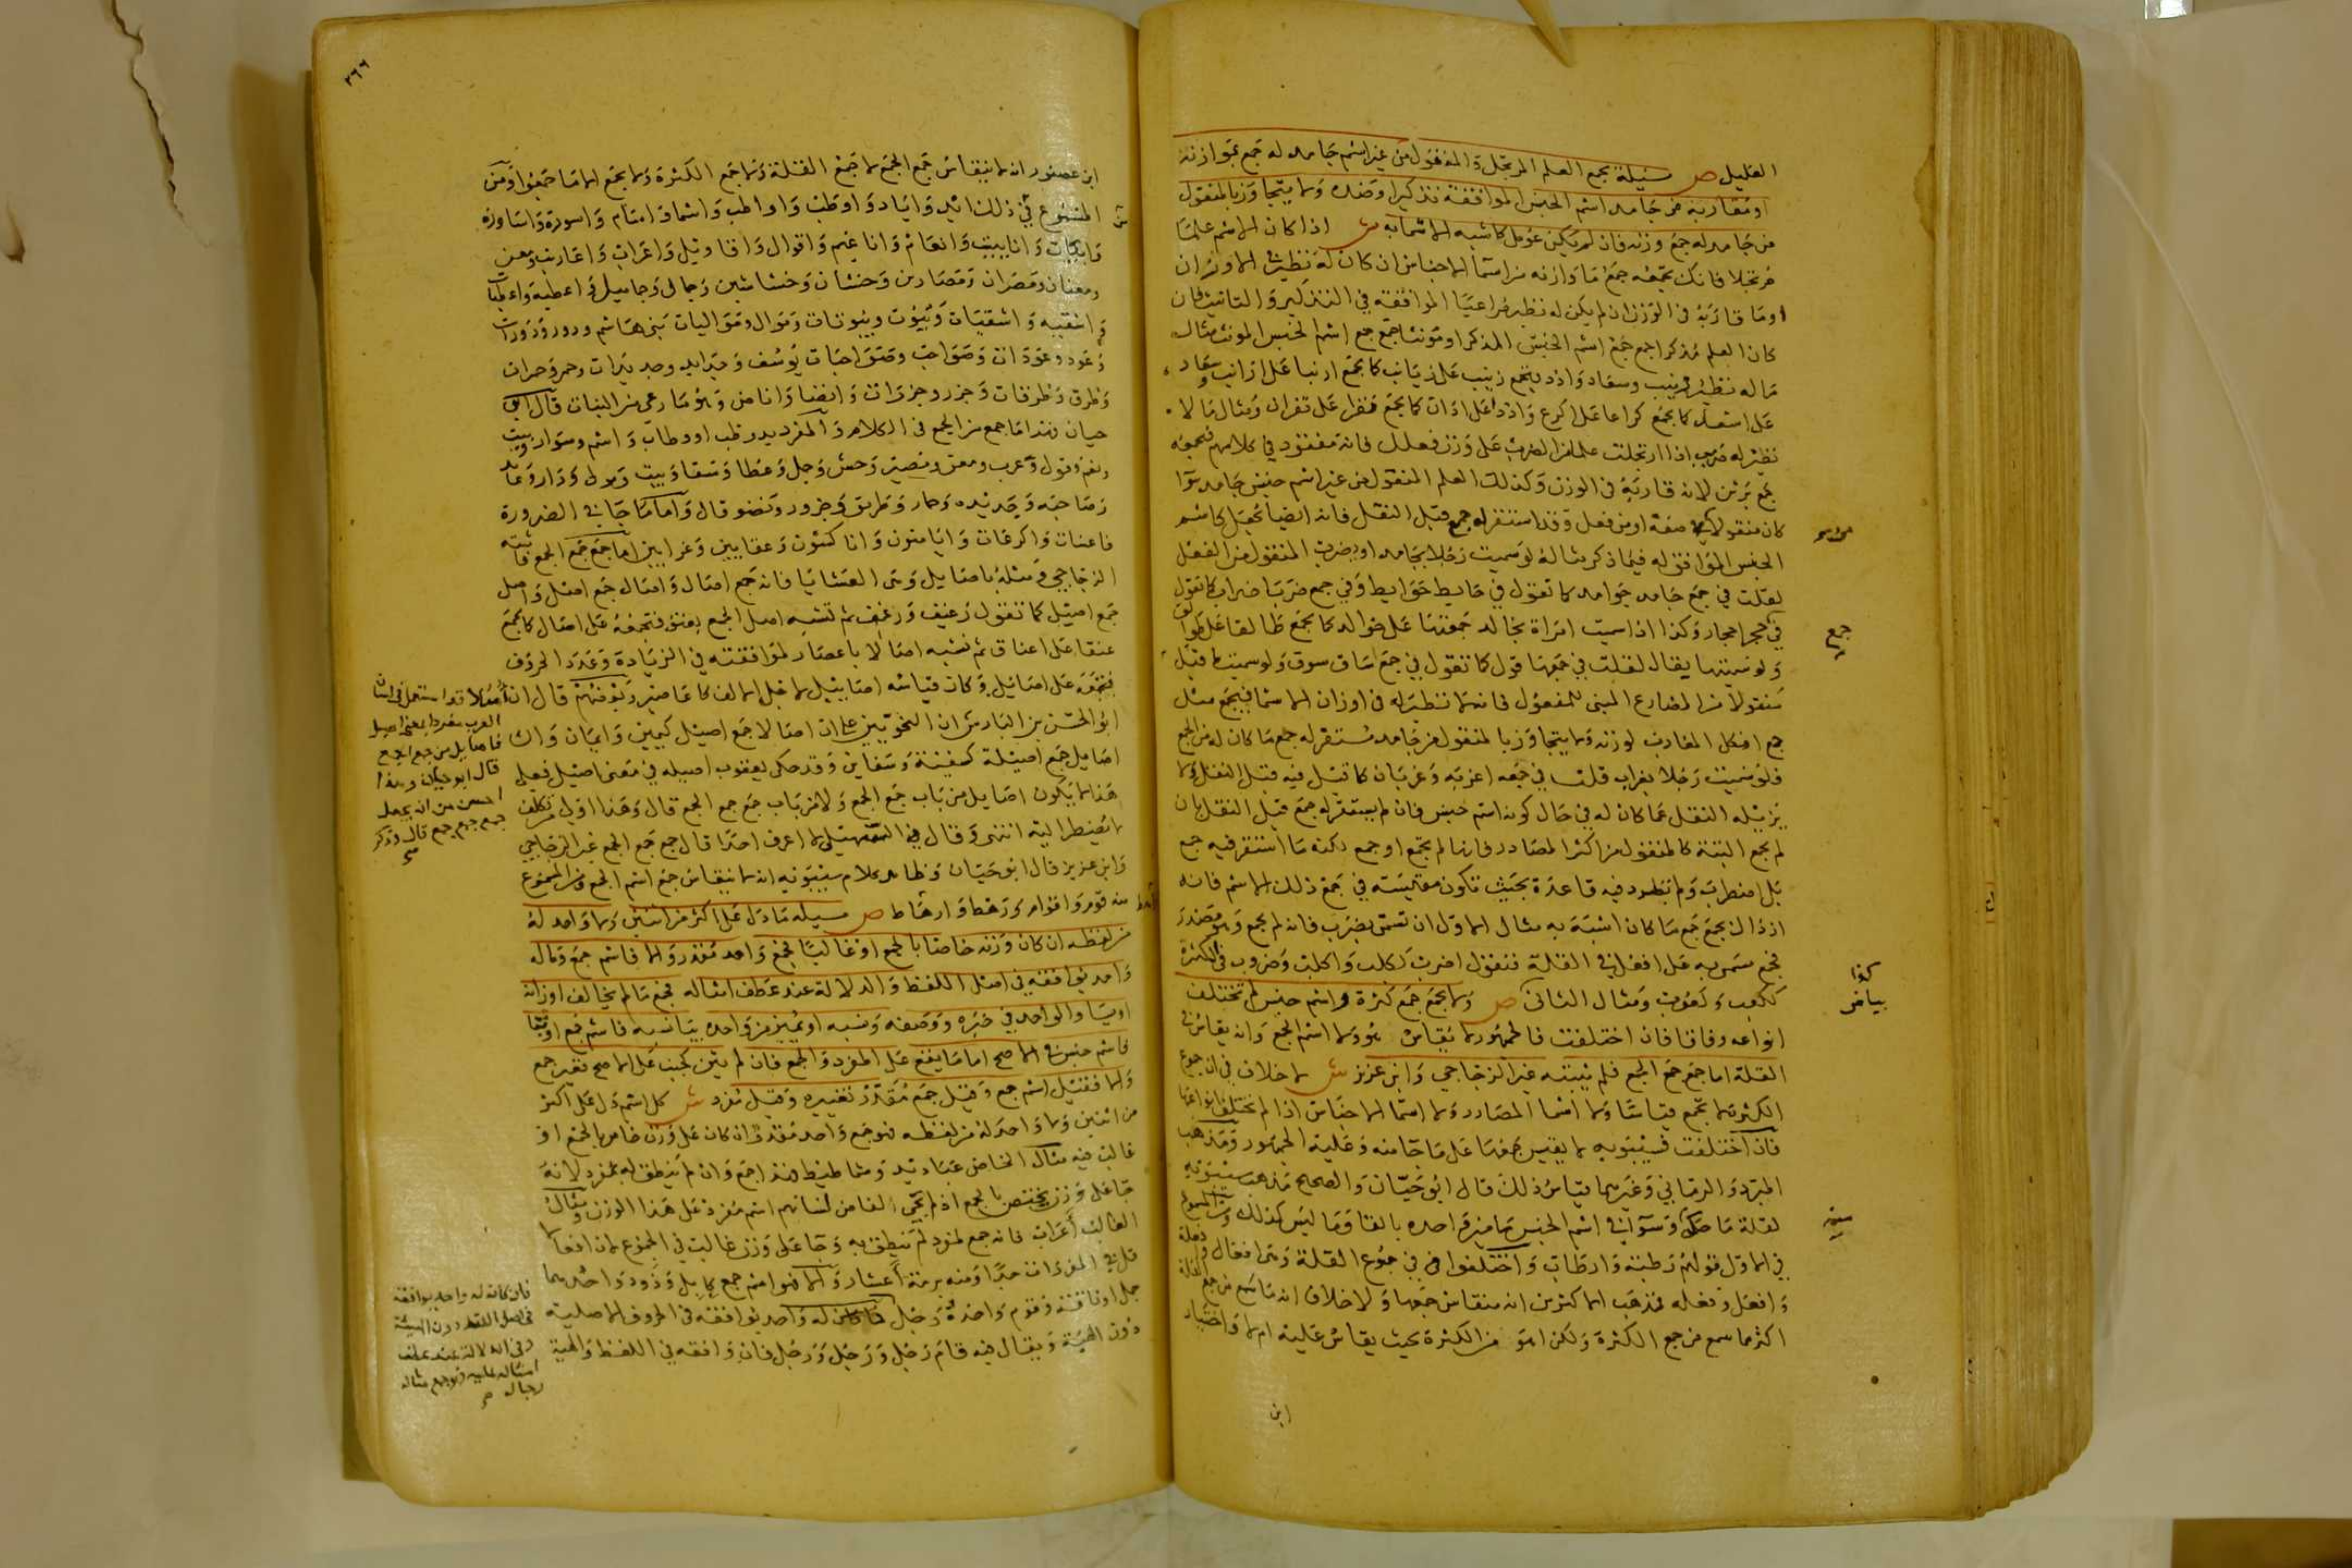 القليل ص مسئلة يجمع العلم المرتجل والمنقول من غير اسم جامد له جمع بموازنه
اومقاربه من جامد اسم الجنس الموافقة تذكيرا وضده ولا يتجاوز بالمنقول
من جامد له جمع وزنه فان لم يكن عومل كاشبه الاسمآبه ش اذا كان الاسم علما
مرتجلا فانك تجمعه جمع ما وازنه من اسمآ الاجناس ان كان له نظير في الاوزان
اوما قاربه في الوزن ان لم يكن له نظير مراعيا الموافقة في التذكير والتانيث فان
كان العلم مذكرا جمع جمع اسم الجنس المذكر اومونثا جمع جمع اسم الجنس المونث مثال
ما له نظير زينب وسعاد وادد يجمع زينب على زيانب كما يجمع ارنبا على ارانب وسعاد
على اسعد كما يجمع كراعا على اكرع وادد على ادان كما يجمع نغرا على نغران ومثال ما لا
نظير له ضربب اذا ارتجلت علما من الضرب على وزن فعلل فانه مفقود في كلامهم فتجمعه
جمع برثن لانه قاربه في الوزن وكذلك العلم المنقول من غير اسم جنس جامد سوآ
كان منقولا من صفة اومن فعل وقد استقر له جمع قبل النقل فانه ايضا كاسم
الجنس الموافق له فيما ذكر مثاله لوسميت رجلا بجامد اوبضرب المنقول من الفعل
لقلت في جمع جامد جوامد كما تقول في حايط حوايط وفي جمع ضرب اضراب كما تقول
في حجر احجار وكذا اذا سميت امراة بخالد جمعتها على خوالد كما يجمع طالقا على طوالق
ولو سميتها يقال لقلت في جمعها قول كما تقول في جمع ساق سوق ولو سميت بما قيل
منقولا من المضارع المبنى للمفعول فانه لا نظير له في اوزان الاسما فيجمع مثل
جمع افكل المقارب لوزنه ولا يتجاوز بالمنقول من جامد مستقر له جمع ما كان له من الجمع
فلو سميت رجلا بغراب قلت في جمعه اغربه وغربان كما قيل فيه قبل النقل ولا
يزيله النقل عما كان له في حال كونه اسم جنس فان لم يستقر له جمع قبل النقل بان
لم يجمع البتة كالمنقول من اكثر المصادر فانها لم تجمع اوجمع ولكنه ما استقر فيه جمع
بل اضطرب ولم تطرد فيه قاعدة بحيث تكون مقيسة في جمع ذلك الاسم فانه
اذذاك يجمع جمع ما كان اشبه به مثال الاول ان تسمى بضرب فانه لم يجمع وهو مصدر
فجمع مسمى به على افعل في القلة فتقول اضرب ككلب واكلب وضروب في الكثرة
ككعب وكعوب ومثال الثانى ص ولا يجمع جمع كثرة واسم جنس لم تختلف
انواعه وفاقا فان اختلفت فالجمهور لا يقاس هو ولا اسم الجمع وانه يقاس في
القلة اما جمع جمع الجمع فلم يثبته غير الزجاجي وابن عزيز ش لا خلاف في ان جموع
الكثرة لا تجمع قياسا ولا اسما المصادر ولا اسما الاجناس اذا لم تختلف انواعها
فان اختلفت فسيبويه لا يقيس جمعها على ما جآ منه وعليه الجمهور ومذهب
المبرد والرماني وغيرهما قياس ذلك قال ابو حيان والصحيح مذهب سيبويه
لقلة ما حكي وسوآ في اسم الجنس ما ميز واحده بالتا وما ليس كذلك ومن المسموع
في الاول قولهم رطبة وارطاب واختلفوا في جموع القلة وهى افعال وافعلة
وافعل وفعله فمذهب الاكثرين انه منقاس جمعها ولا خلاف انه ما سمع من جمع القلة
اكثر مما سمع من جمع الكثرة ولكن اهو من الكثرة بحيث يقاس عليه ام لا واختيار
ابن
جمع
كذا
بياض
٢٦٦
ابن عصفور انه لا ينقاس جمع الجمع لا جمع القلة ولا جمع الكثرة ولا يجمع الا ما جمعوا ومن
المسموع في ذلك ايد واياد واوطب واواطب واسما واسام واسورة واساورة
وابيات وابابيت وانعام واناعيم واقوال واقاويل واعراب واعاريب ومعن
ومعنان ومصران ومصارين وحشان وحشاشين وجمال وجمايل واعطية واعطيات
واسقيه واسقيات وبيوت وبيوتات وموال ومواليات بني هاشم ودور ودورات
وعود وعودات وصواحب وصواحبات يوسف وحدايد وحديدات وحمر وحمرات
وطرق وطرقات وجزر وجزرات وانضا واناض وهو ما رعي من النبات قال ابو
حيان فهذا ما جمع من الجمع في الكلام والمفرد يد ورطب اووطاب واسم وسوار وبيت
ونعم وقول وعرب ومعن ومصير وحش وجمل وعطا وسقا وبيت ومولى ودار وعائد
وصاحبه وحديده وحمار وطريق وجزور ونضو قال واما ما جآ في الضرورة
فاعنات واكرعات وايامنون واناكسون وعقابين وغرابين اما جمع جمع الجمع فاثبته
الزجاجي ومثله باصايل وهى العشايا فانه جمع اصال واصال جمع اصل واصل
جمع اصيل كما تقول رغيف ورغف ثم تشبه اصل الجمع بعنق فتجمعه على اصال كما تجمع
عنقا على اعناق ثم تشبه اصالا باعصار لموافقته في الزيادة وعدد الحروف
فتجمعه على اصائل وكان قياسه اصاييل لا على اصايل كاعاصير
ابو الحسن بن الباذش ان النحويين على ان اصالا جمع اصيل كيمين وايمان وان
اصايل جمع اصيلة كسفينة وسفاين وقد حكى يعقوب اصيله في معنى اصيل فعلى
هذا لا يكون اصايل من باب جمع الجمع ولا من باب جمع جمع الجمع قال وهذا اولى من تكلف
لا يضطر اليه انتهى وقال في التسهيل لا اعرف احدا قال جمع جمع الجمع غير الزجاجي
وابن عزيز قال ابو حيان وظاهر كلام سيبويه انه لا ينقاس جمع اسم الجمع ومن المسموع
منه قوم واقوام ورهط وارهاط ص مسيله ما دل على اكثر من اثنين ولا واحد له
من لفظه ان كان وزنه خاصا بالجمع اوغالبا فجمع واحد مقدر والا فاسم جمع وما له
واحد يوافقه في اصل اللفظ والدلالة عند عطف امثاله فجمع ما لم يخالف اوزانه
اويساوالواحد في خبره ووصفه ونسبه اويميز من واحده بيا نسبه فاسم جمع اوبتا
فاسم جنس في الاصح اما ما يقع على المفرد والجمع فان لم يثن كجنب على الاصح فغير جمع
والا فقيل اسم جمع وقيل جمع مقدر تغييره وقيل مفرد ش كل اسم دل على اكثر
من اثنين ولا واحد له من لفظه فهو جمع واحد مقدر ان كان على وزن خاص بالجمع او
غالب فيه مثال الخاص عباديد وشماطيط فهذا جمع وان لم ينطق له بمفرد لانه
جآ على وزن يختص بالجمع اذ لم يجي الفا من لسانهم اسم مفرد على هذا الوزن ومثال
الغالب اعراب فانه جمع لمفرد لم ينطق به وجآ على وزن غالب في الجموع لان افعالا
قل في المفردات جدا ومنه برمة اعشار والا فهو اسم جمع كابل وذود واحدهما
جمل اوناقة وقوم واحده رجل فان كان له واحد يوافقه في الحروف الاصلية
دون الهيئة ويقال فيه قام رجل ورجل ورجل فان وافقه في اللفظ والهيئة
العرب مفردا بمعنى اصيل
فاصايل من جمع الجمع
قال ابو حيان وهذا
احسن من ان يجعل
جمع جمع جمع قال وذكر
صح
فان كان له واحد يوافقه
في اصل اللفظ دون الهيئة
وفي الدلالة عند عطف
امثاله عليه فهو جمع مثاله
رجال صح